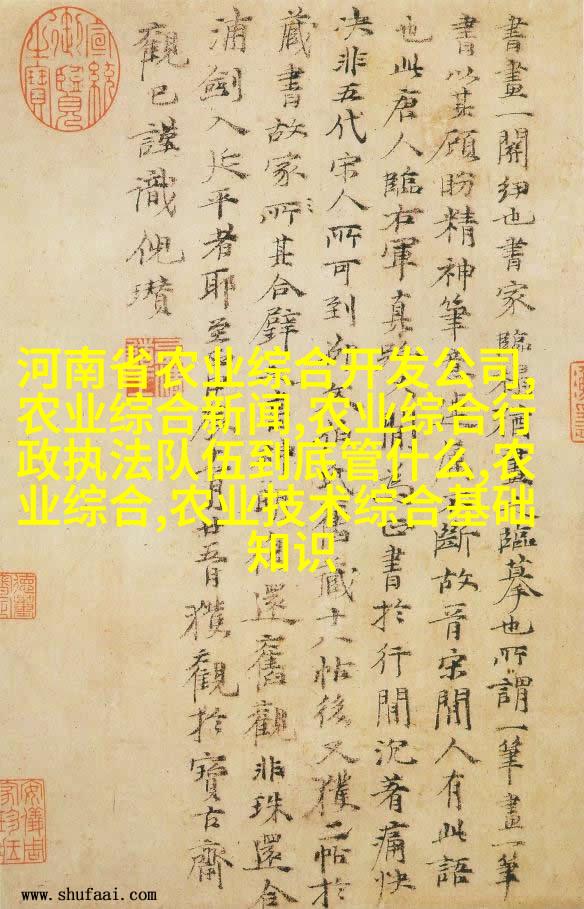 宣統御覽之寶
書畫一關紐也書家臨猶畫臨摹也所謂一筆畫一筆
書以其顧盼精神筆不斷故晉宋間人有此語
也此唐人臨右軍真書於行間沉著痛快
決非五代宋人所可到藏十八帖後又獲二帖於
藏書故家所其合璧還舊觀非珠還合
浦劍入延平者耶至月廿五日獲觀於寶古齋
觀已謹識倪瓚
河南省农业综合开发公司,
农业综合新闻,农业综合行
政执法队伍到底管什么,农
业综合,农业技术综合基础
知识
安儀周家珍藏
www.shufaai.com